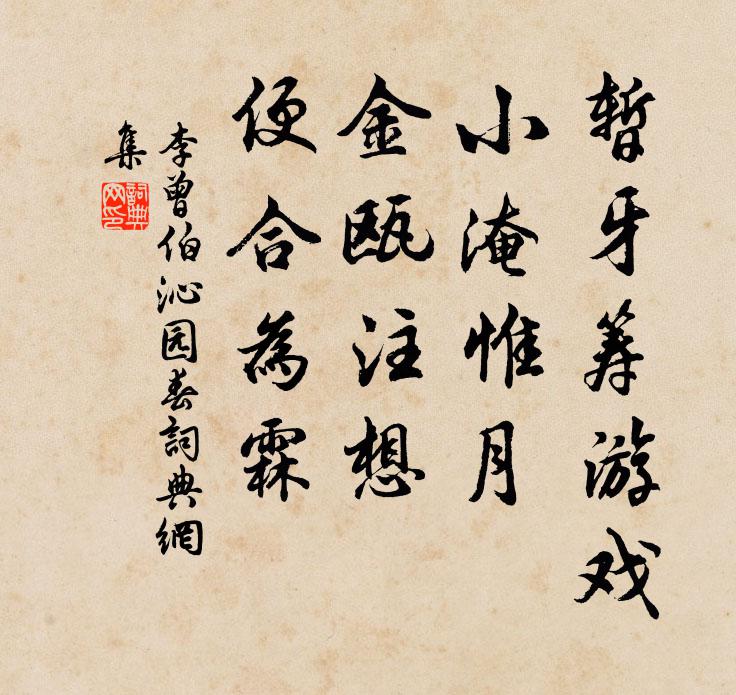 暂牙筹游戏
小淹惟月
金瓯注想
便合為霖
李曾伯沁园春詞典網
集
詞典网印